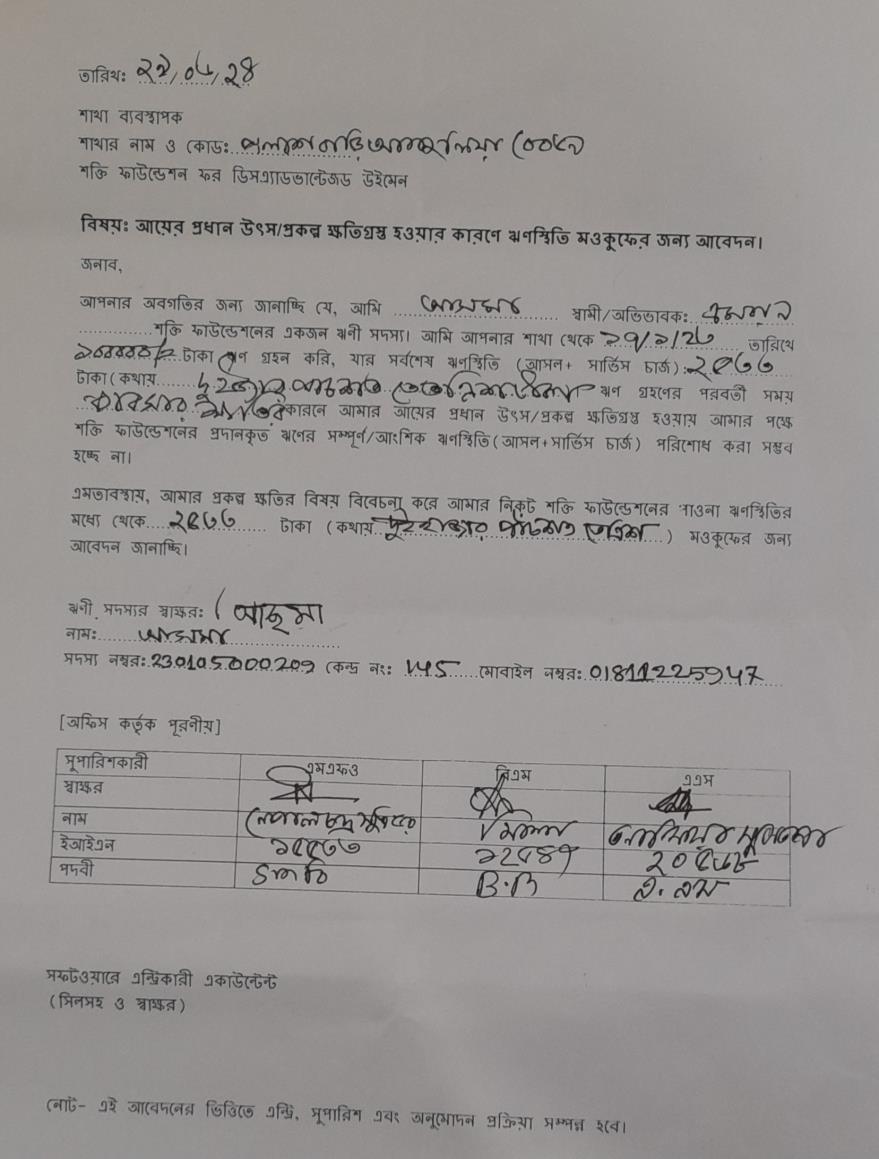 তারিখ: ২২/০৮/২৪
শাখা ব্যবস্থাপক
শাখার নাম ও কোড:
শক্তি ফাউন্ডেশন ফর ডিসএ্যাডভান্টেজড উইমেন
বিষয়: আয়ের প্রধান উৎস/প্রকল্প ক্ষতিগ্রস্ত হওয়ার কারণে ঋণস্থিতি মওকুফের জন্য আবেদন।
জনাব,
আপনার অবগতির জন্য জানাচ্ছি যে, আমি আছমা স্বামী/অভিভাবক:
শক্তি ফাউন্ডেশনের একজন ঋনী সদস্য। আমি আপনার শাখা থেকে তারিখে
টাকা ঋণ গ্রহন করি, যার সর্বশেষ ঋণস্থিতি (আসল+ সার্ভিস চার্জ): ২৫৩৩
টাকা (কথায় দুই হাজার পাঁচশত তেত্রিশ টাকা ঋণ গ্রহণের পরবর্তী সময়
কারনে আমার আয়ের প্রধান উৎস/প্রকল্প ক্ষতিগ্রস্ত হওয়ায় আমার পক্ষে
শক্তি ফাউন্ডেশনের প্রদানকৃত ঋণের সম্পূর্ণ/আংশিক ঋণস্থিতি (আসল+সার্ভিস চার্জ) পরিশোধ করা সম্ভব
হচ্ছে না।
এমতাবস্থায়, আমার প্রকল্প ক্ষতির বিষয় বিবেচনা করে আমার নিকট শক্তি ফাউন্ডেশনের পাওনা ঋণস্থিতির
মধ্যে থেকে ২৫৩৩ টাকা (কথায় দুই হাজার পাঁচশত তেত্রিশ) মওকুফের জন্য
আবেদন জানাচ্ছি।
ঋনী সদস্যর স্বাক্ষর: আছমা
নাম: আছমা
সদস্য নম্বর: 230105000209 কেন্দ্র নং: 145 মোবাইল নম্বর: 01811225947
[অফিস কর্তৃক পূরনীয়]
সুপারিশকারী এমএফও বিএম এএম
স্বাক্ষর
নাম
ইআইএন ১৫৫৩৩
পদবী B.M এ.এম
সফটওয়ারে এন্ট্রিকারী একাউন্টেন্ট
(সিলসহ ও স্বাক্ষর)
নোট- এই আবেদনের ভিত্তিতে এন্ট্রি, সুপারিশ এবং অনুমোদন প্রক্রিয়া সম্পন্ন হবে।